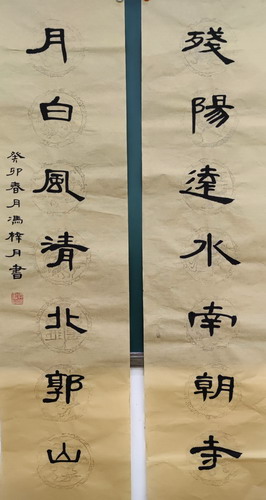 殘陽遠水南朝寺
月白風清北郭山
癸卯春月馮月書